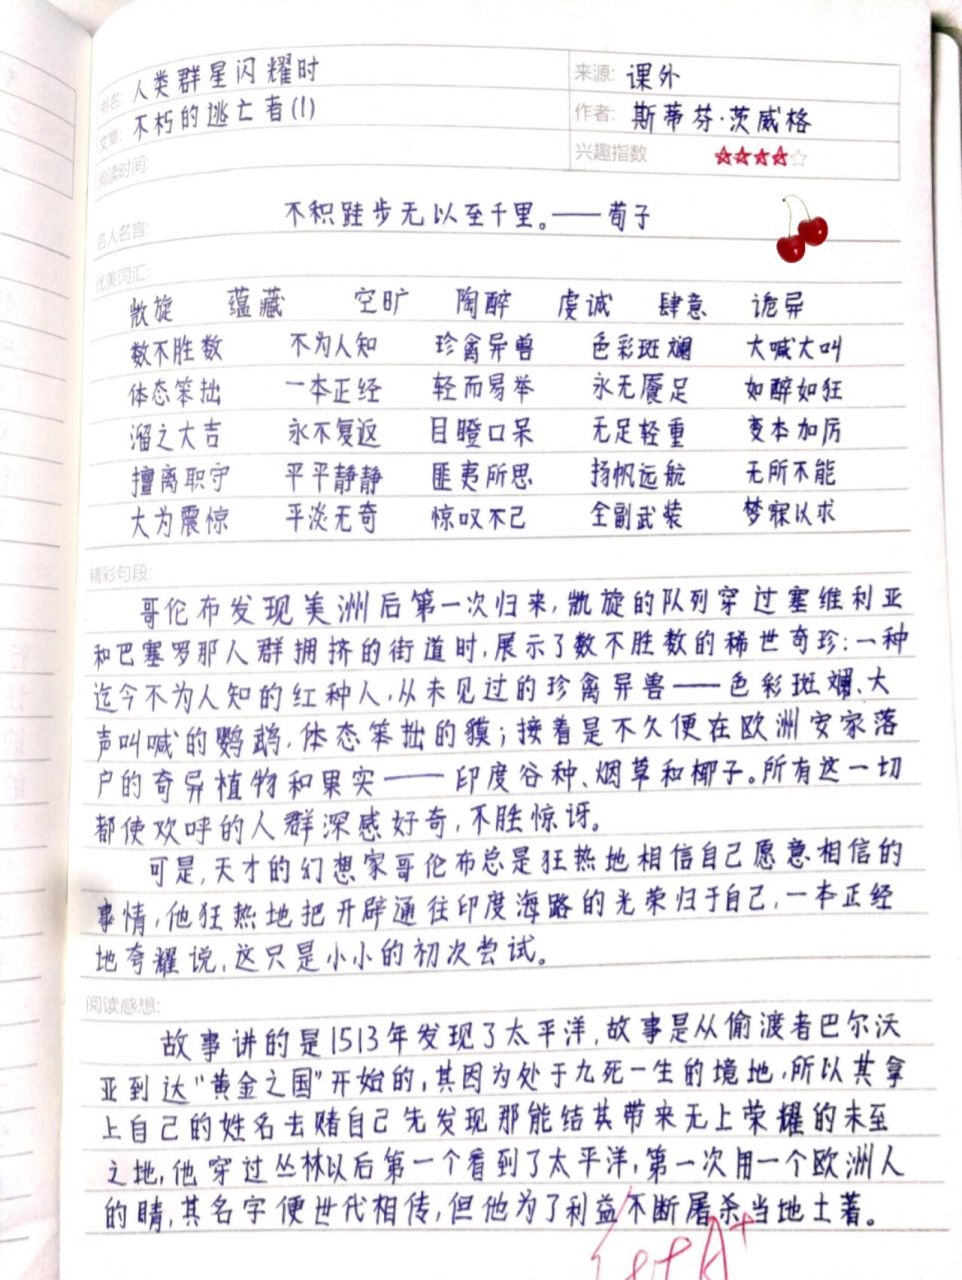 书名: 人类群星闪耀时
来源: 课外
文章: 不朽的逃亡者(1)
作者: 斯蒂芬·茨威格
阅读时间:
兴趣指数
名人名言: 不积跬步无以至千里。——荀子
优美词汇:
凯旋 蕴藏 空旷 陶醉 虔诚 肆意 诡异
数不胜数 不为人知 珍禽异兽 色彩斑斓 大喊大叫
体态笨拙 一本正经 轻而易举 永无餍足 如醉如狂
溜之大吉 永不复返 目瞪口呆 无足轻重 变本加厉
擅离职守 平平静静 匪夷所思 扬帆远航 无所不能
大为震惊 平淡无奇 惊叹不己 全副武装 梦寐以求
精彩句段:
哥伦布发现美洲后第一次归来,凯旋的队列穿过塞维利亚
和巴塞罗那人群拥挤的街道时,展示了数不胜数的稀世奇珍:一种
迄今不为人知的红种人,从未见过的珍禽异兽——色彩斑斓、大
声叫喊的鹦鹉,体态笨拙的貘;接着是不久便在欧洲安家落
户的奇异植物和果实——印度谷种、烟草和椰子。所有这一切
都使欢呼的人群深感好奇,不胜惊讶。
可是,天才的幻想家哥伦布总是狂热地相信自己愿意相信的
事情,他狂热地把开辟通往印度海路的光荣归于自己,一本正经
地夸耀说,这只是小小的初次尝试。
阅读感想:
故事讲的是1513年发现了太平洋,故事是从偷渡者巴尔沃
亚到达“黄金之国”开始的,其因为处于九死一生的境地,所以其拿
上自己的姓名去赌自己先发现那能结其带来无上荣耀的未至
之地,他穿过丛林以后第一个看到了太平洋,第一次用一个欧洲人
的睛,其名字便世代相传,但他为了利益不断屠杀当地土著。
A+